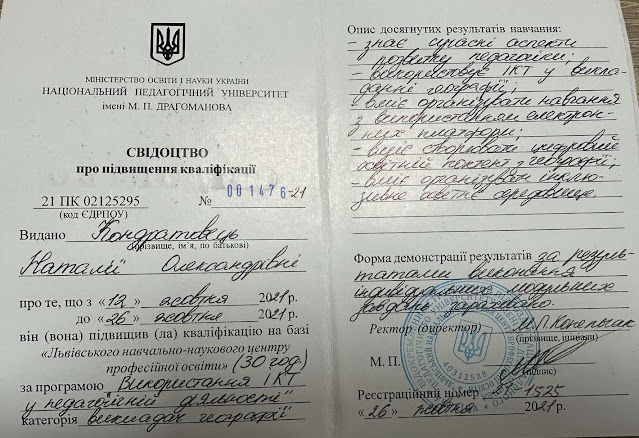 МІНІСТЕРСТВО ОСВІТИ І НАУКИ УКРАЇНИ
НАЦІОНАЛЬНИЙ ПЕДАГОГІЧНИЙ УНІВЕРСИТЕТ
імені М. П. ДРАГОМАНОВА
СВІДОЦТВО
про підвищення кваліфікації
21 ПК 02125295 № 001476-21
(код ЄДРПОУ)
Видано Кондратовець
(прізвище, ім'я, по батькові)
Наталії Олександрівні
про те, що з «12» жовтня 2021 р.
до «26» жовтня 2021 р.
він (вона) підвищив (ла) кваліфікацію на базі
«Львівського навчально-наукового центру
професійної освіти» (30 год)
за програмою "Використання ІКТ
у педагогічній діяльності"
категорія викладач географії
Опис досягнутих результатів навчання:
- знає сучасні аспекти
розвитку педагогіки;
- використовує ІКТ у викла-
данні географії;
- вміє організувати навчання
з використанням електрон-
них платформ;
- вміє створювати цифровий
освітній контент з географії;
- вміє організувати інклю-
зивне освітнє середовище.
Форма демонстрації результатів за резуль-
татами виконання
індивідуальних модульних
завдань зараховано.
Ректор (директор)
(прізвище, ініціали)
М. П.
(підпис)
40312588
Реєстраційний номер 1525
«26» жовтня 2021 р.